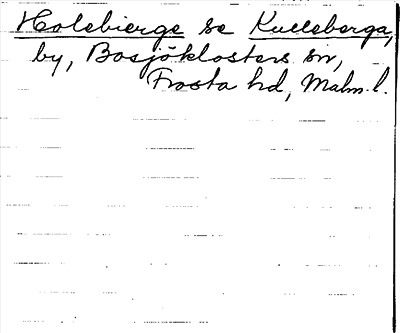 Holebierge se Kulleberga,
by, Bosjöklosters sn,
Frosta hd, Malm. l.